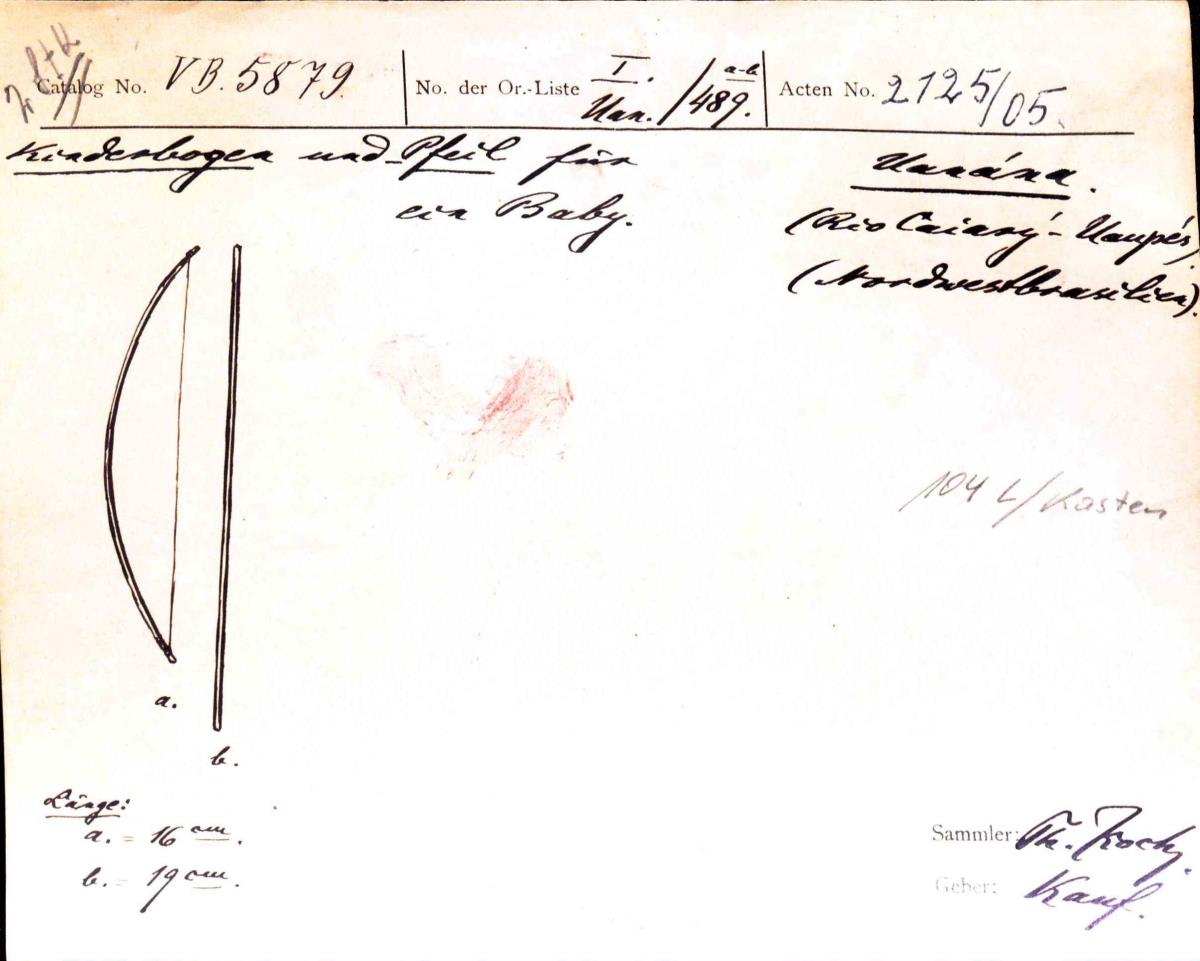 Catalog No. VB. 5879.
No. der Or.-Liste I. Uan. / a-b 489.
Acten No. 2125/05.
Kinderbogen und Pfeil für
ein Baby.
Uanána.
(Rio Caiarý-Uaupés)
(Nordwestbrasilien).
104 L/Kasten
a.
b.
Länge:
a. = 16 cm.
b. = 19 cm.
Sammler: Th. Koch.
Geber: Kauf.